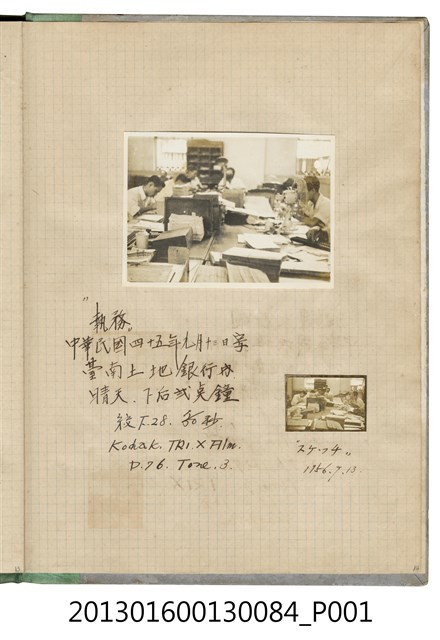 "執務"
中華民國四十五年七月十三日寫
臺南土地銀行內
晴天．下后弍点鐘
絞 F.28. 秒
Kodak. TRI. X Film.
D.76. Tone. 3.
"スケッチ"
1956.7.13.
201301600130084_P001